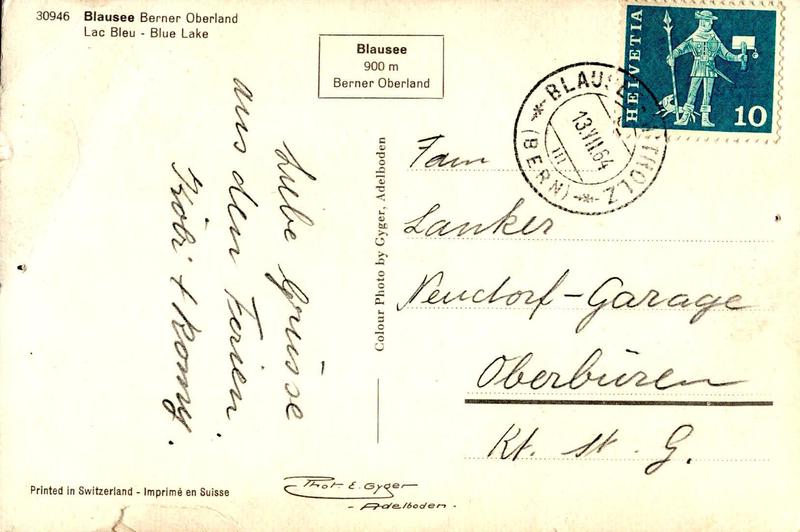 30946 Blausee Berner Oberland
Lac Bleu - Blue Lake
Blausee
900 m
Berner Oberland
HELVETIA
10
BLAUSEE-MITHOLZ
13.VII.64
III
(BERN)
Liebe Grüsse
aus den Ferien.
Fam
Lanker
Neudorf-Garage
Oberbüren
Kt. St. G.
Colour Photo by Gyger, Adelboden
Printed in Switzerland - Imprimé en Suisse
Phot. E. Gyger
- Adelboden. -